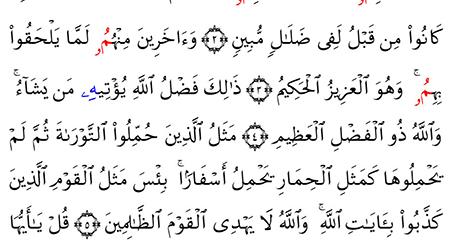 كَانُواْ مِن قَبْلُ لَفِى ضَلَٰلٍ مُّبِينٍ ﴿٢﴾ وَءَاخَرِينَ مِنْهُمُۥ لَمَّا يَلْحَقُواْ
بِهِمُۥ ۚ وَهُوَ ٱلْعَزِيزُ ٱلْحَكِيمُ ﴿٣﴾ ذَٰلِكَ فَضْلُ ٱللَّهِ يُؤْتِيهِۦ مَن يَشَآءُ ۚ
وَٱللَّهُ ذُو ٱلْفَضْلِ ٱلْعَظِيمِ ﴿٤﴾ مَثَلُ ٱلَّذِينَ حُمِّلُواْ ٱلتَّوْرَىٰةَ ثُمَّ لَمْ
يَحْمِلُوهَا كَمَثَلِ ٱلْحِمَارِ يَحْمِلُ أَسْفَارًۢا ۚ بِئْسَ مَثَلُ ٱلْقَوْمِ ٱلَّذِينَ
كَذَّبُواْ بِـَٔايَٰتِ ٱللَّهِ ۚ وَٱللَّهُ لَا يَهْدِى ٱلْقَوْمَ ٱلظَّٰلِمِينَ ﴿٥﴾ قُلْ يَٰٓأَيُّهَا